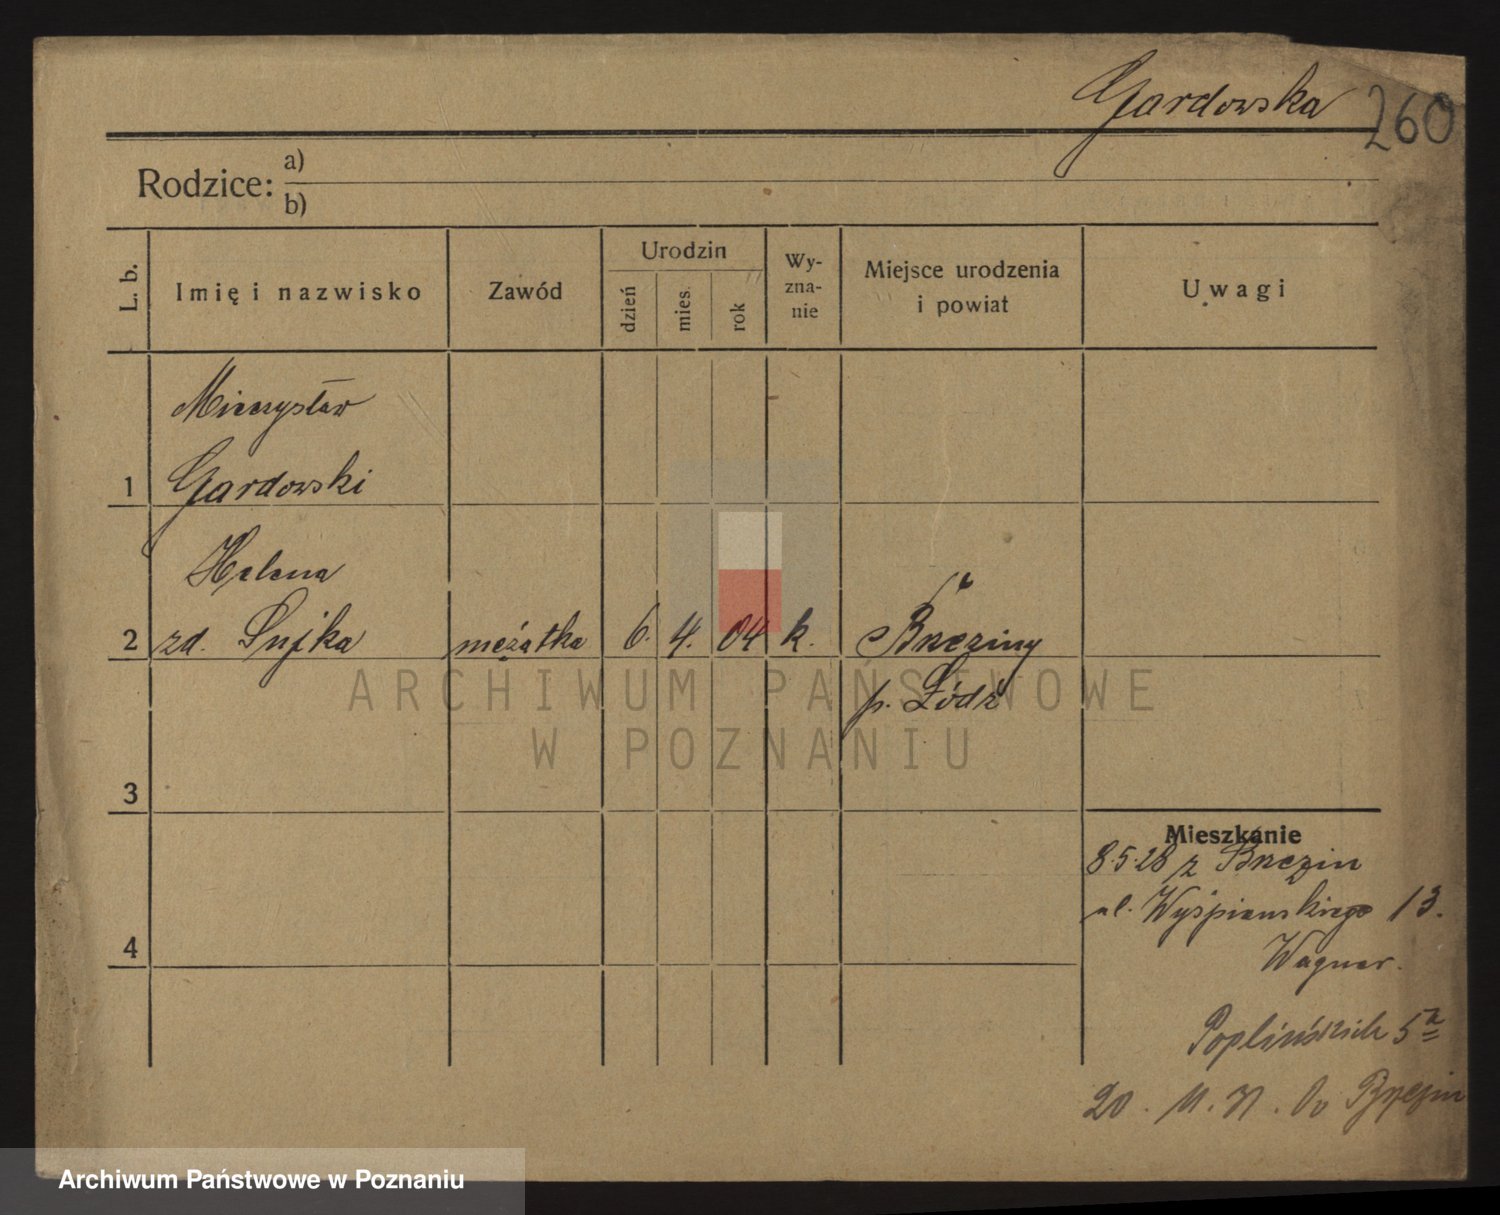 Gardowska
260
Rodzice: a)
b)
L. b.
Imię i nazwisko
Zawód
Urodzin
dzień
mies.
rok
Wy-
zna-
nie
Miejsce urodzenia
i powiat
Uwagi
Mieczysław
1 Gardowski
Helena
2 zd. Sujka mężatka 6. 4. 04 k. Brzeziny
p. Łódź
ARCHIWUM PAŃSTWOWE
W POZNANIU
3
Mieszkanie
8.5.28 z Brzezin
ul. Wyśpianskiego 13.
Wagner.
4
Poplińskich 5a
20. 11. do Brzezin
Archiwum Państwowe w Poznaniu